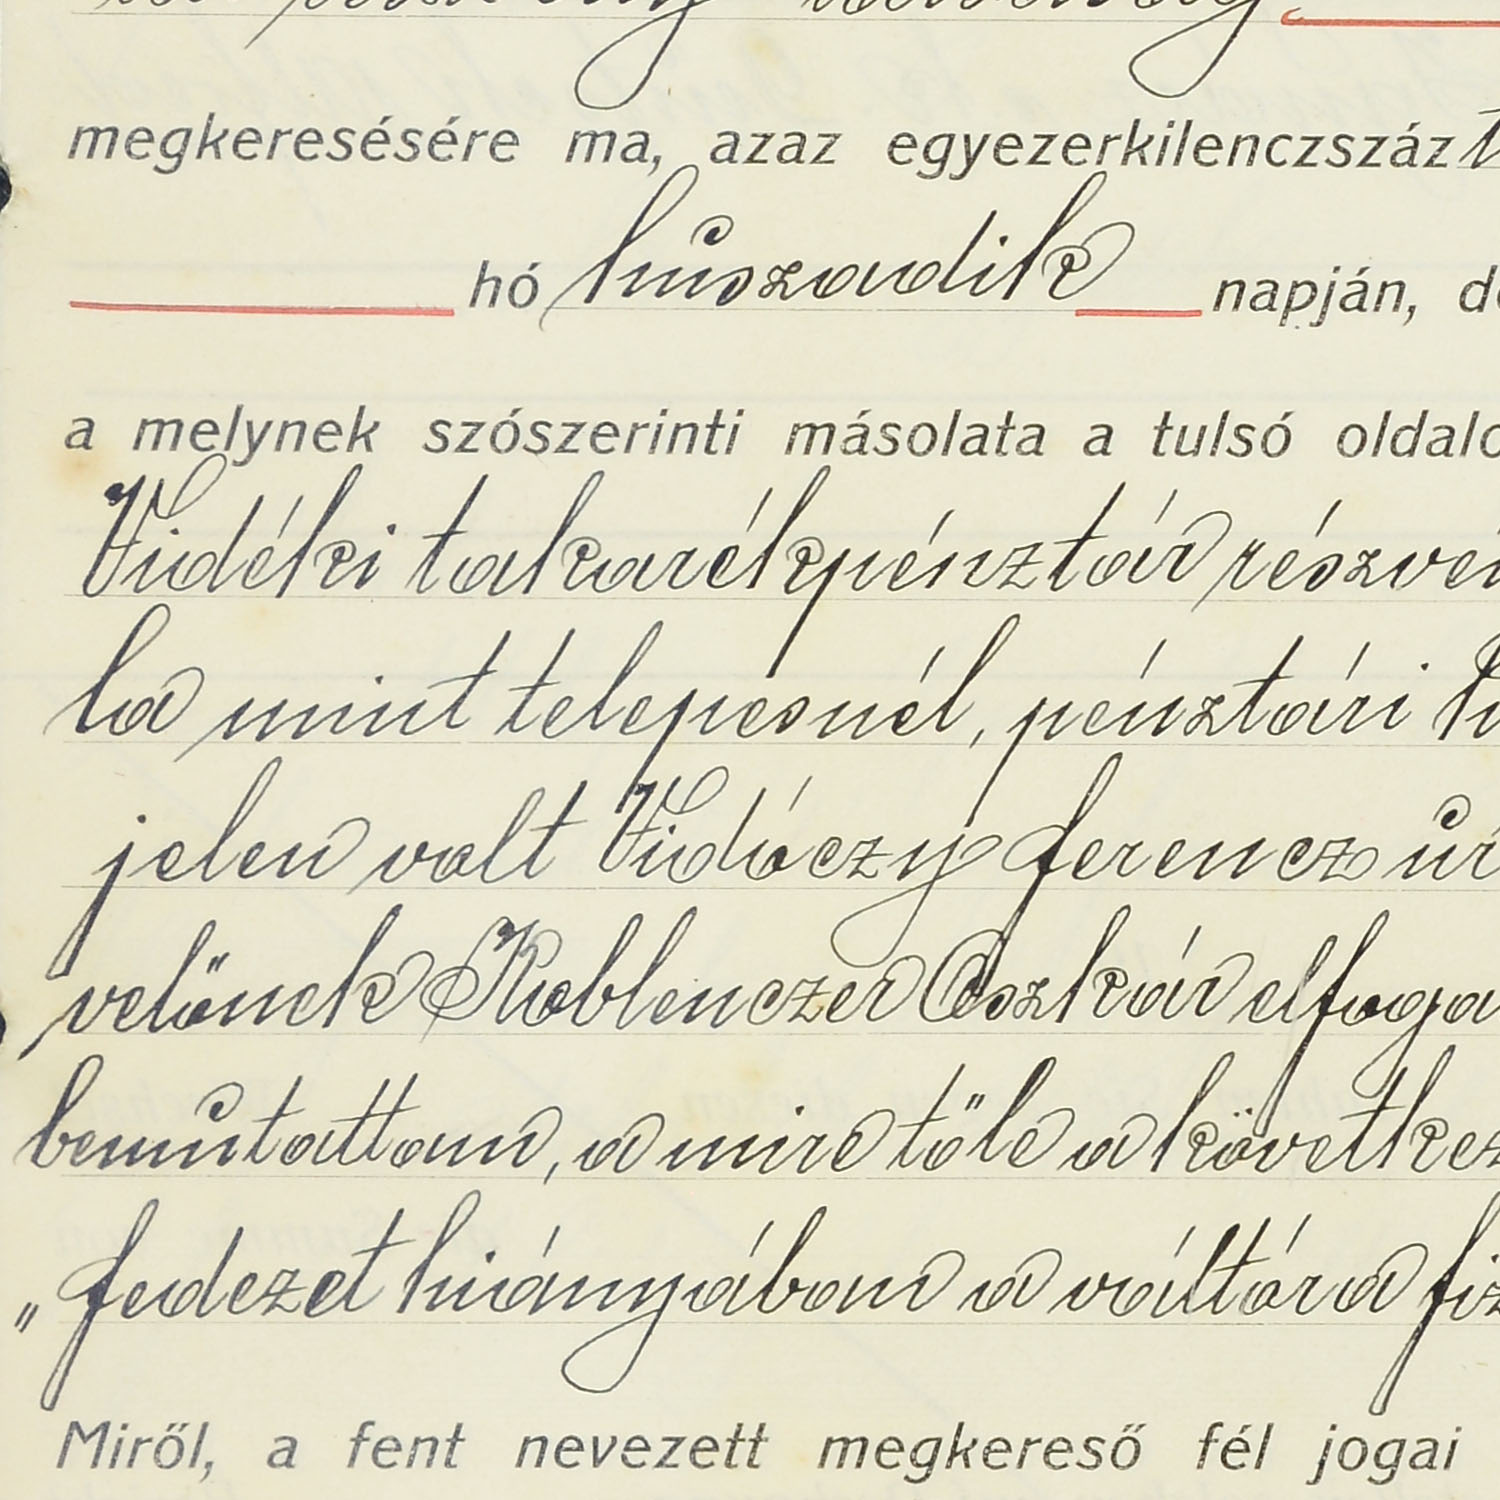 megkeresésére ma, azaz egyezerkilenczszáz
hó huszadik napján,
a melynek szószerinti másolata a tulsó
Vidéki takarékpénztár
la mint telepesnél, pénztári
jelen volt Vidóczy ferencz úr
velőnek Koblenczer Oszkár
bemútattam, a mire tőle a
„fedezet hiányában a váltóra
Miről, a fent nevezett megkereső fél jogai